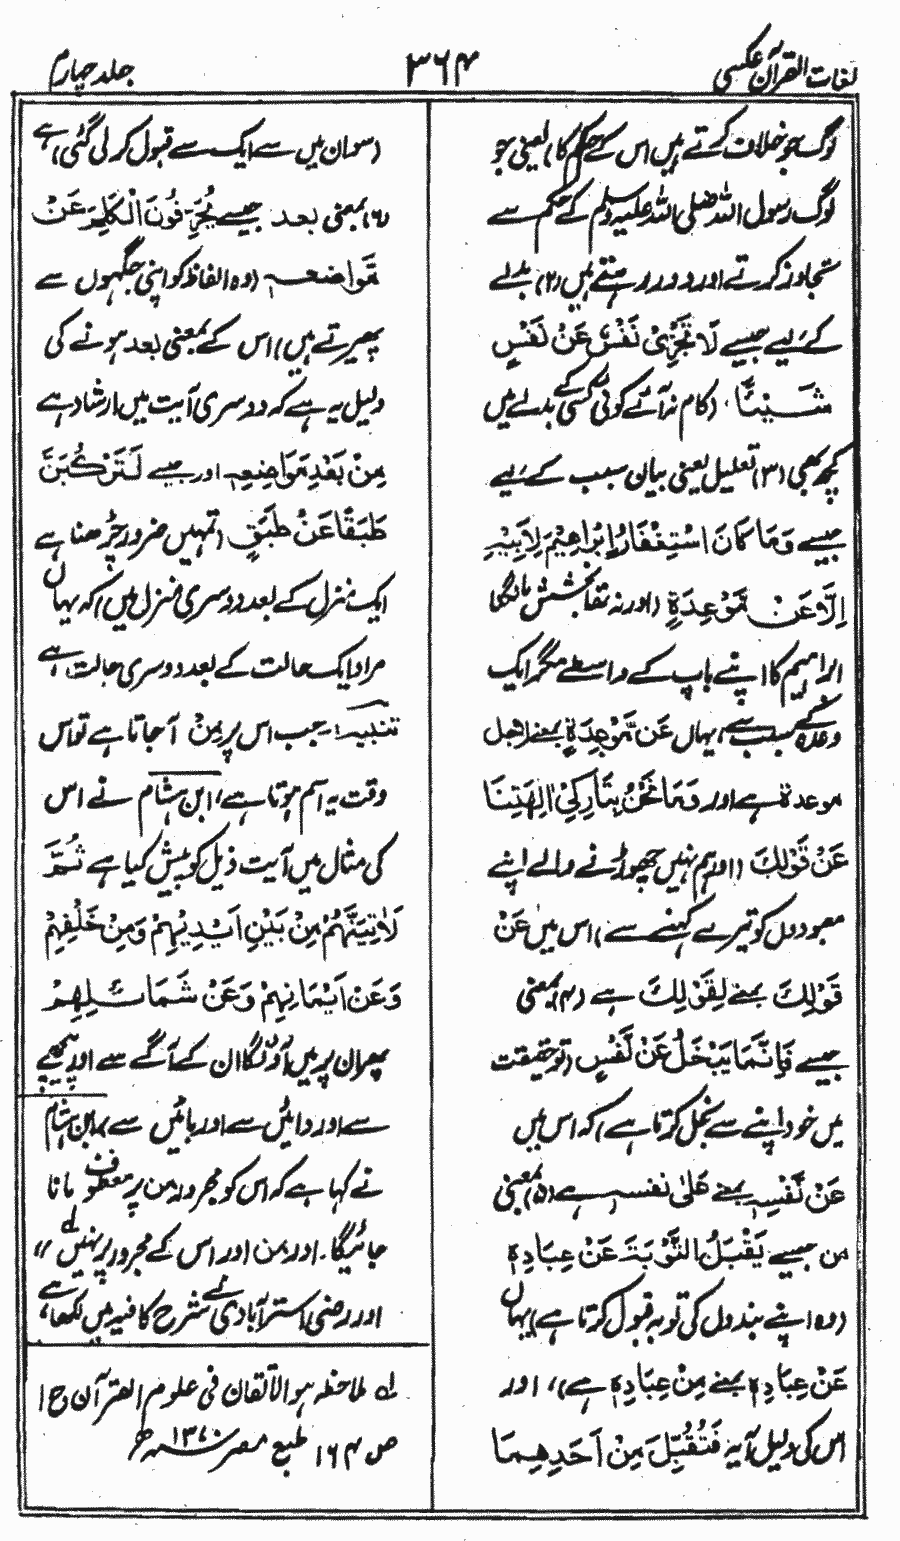 لغات القرآن عکسی
۳۶۴
جلد چہارم
لوگ جو خلاف کرتے ہیں اس کے حکم کا) یعنی جو
لوگ رسول اللہ صلی اللہ علیہ وسلم کے حکم سے
تجاوز کرتے اور دور رہتے ہیں (۲) بدلے
کے لیے جیسے لَا تَجْزِیْ نَفْسٌ عَنْ نَّفْسٍ
شَیْئًا (کام نہ آئے کوئی کسی کے بدلے میں
کچھ بھی (۳) تعلیل یعنی بیان سبب کے لیے
جیسے وَمَا کَانَ اسْتِغْفَارُ اِبْرَاهِیْمَ لِاَبِیْهِ
اِلَّا عَنْ مَّوْعِدَةٍ (اور نہ تھا بخشش مانگنا
ابراہیم کا اپنے باپ کے واسطے مگر ایک
وعدہ کے سبب سے) یہاں عَنْ مَّوْعِدَةٍ بمعنے لاجل
موعدة ہے اور وَمَا نَحْنُ بِتَارِكِیْ اٰلِهَتِنَا
عَنْ قَوْلِكَ (اور ہم نہیں چھوڑنے والے اپنے
معبودوں کو تیرے کہنے سے) اس میں عَنْ
قَوْلِكَ بمعنے لِقَوْلِكَ ہے (۴) بمعنی
جیسے فَاِنَّمَا یَبْخَلُ عَنْ نَّفْسِهٖ (تو حقیقت
میں خود اپنے سے بخل کرتا ہے) کہ اس میں
عَنْ نَّفْسِهٖ بمعنے عَلٰی نفسہ ہے (۵) بمعنی
من جیسے یَقْبَلُ التَّوْبَةَ عَنْ عِبَادِهٖ
(وہ اپنے بندوں کی توبہ قبول کرتا ہے) یہاں
عَنْ عِبَادِهٖ بمعنے مِنْ عِبَادِهٖ ہے)، اور
اس کی دلیل آیہ فَتُقُبِّلَ مِنْ اَحَدِهِمَا
(سو ان میں سے ایک سے قبول کر لی گئی) ہے
(۶) بمعنی بعد جیسے یُحَرِّفُوْنَ الْكَلِمَ عَنْ
مَّوَاضِعِهٖ (وہ الفاظ کو اپنی جگہوں سے
پھیرتے ہیں) اس کے بمعنی بعد ہونے کی
دلیل یہ ہے کہ دوسری آیت میں ارشاد ہے
مِنْ بَعْدِ مَوَاضِعِهٖ اور جیسے لَتَرْكَبُنَّ
طَبَقًا عَنْ طَبَقٍ (تمہیں ضرور چڑھنا ہے
ایک منزل کے بعد دوسری منزل میں) کہ یہاں
مراد ایک حالت کے بعد دوسری حالت ہے
تنبیہ:۔ جب اس پر مِنْ آجاتا ہے تو اس
وقت یہ اسم ہوتا ہے، ابن ہشام نے اس
کی مثال میں آیت ذیل کو پیش کیا ہے ثُمَّ
لَاٰتِیَنَّهُمْ مِنْ بَیْنِ اَیْدِیْهِمْ وَمِنْ خَلْفِهِمْ
وَعَنْ اَیْمَانِهِمْ وَعَنْ شَمَائِلِهِمْ
پھر ان پر میں آؤں گا ان کے آگے سے اور پیچھے
سے اور دائیں سے اور بائیں سے) ابن ہشام
نے کہا ہے کہ اس کو مجرور من پر معطوف مانا
جائیگا۔ اور من اور اس کے مجرور پر نہیں ؎۱ "
اور رضی استرآبادی نے شرح کافیہ میں لکھا ہے،
؎۱ ملاحظہ ہو الاتقان فی علوم القرآن ج ۱
ص ۱۶۴ طبع مصر ۱۳۷۰ھ